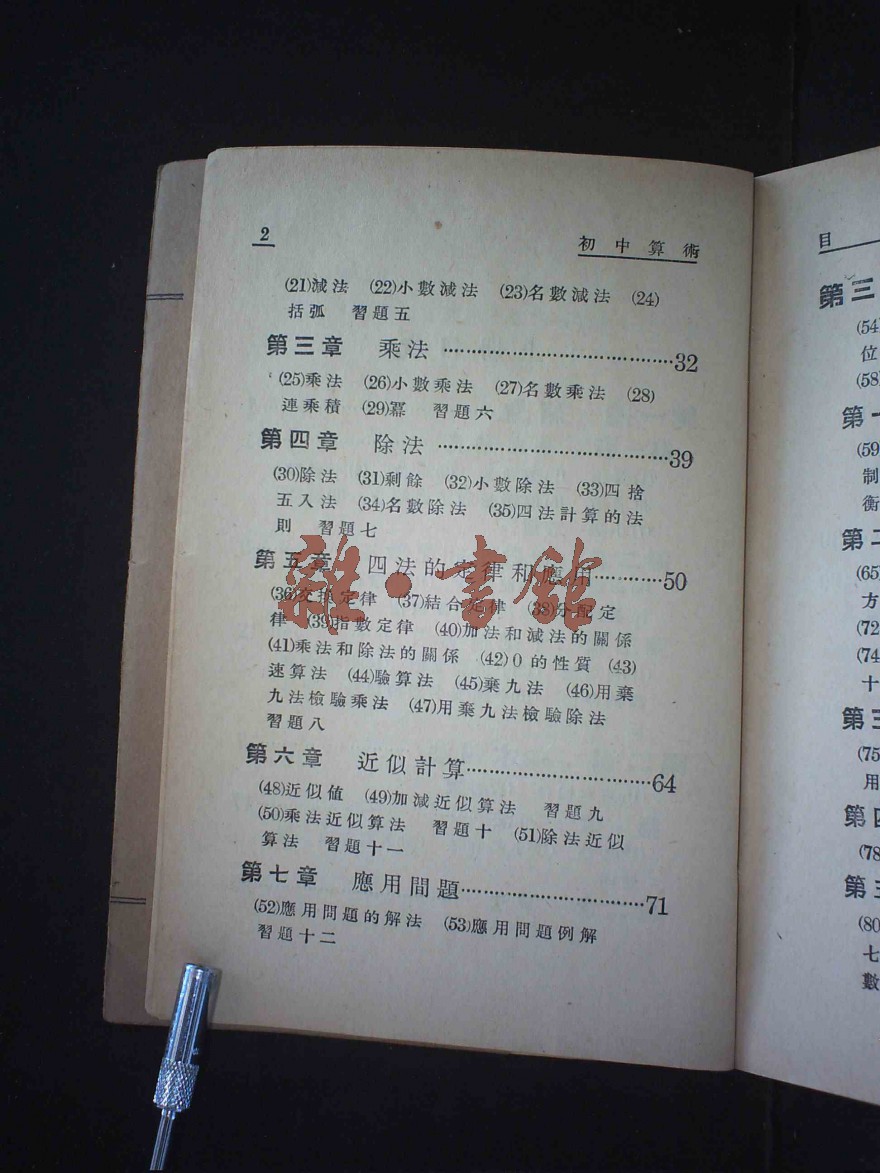 2
初中算術
(21)減法 (22)小數減法 (23)名數減法 (24)
括弧 習題五
第三章 乘法 ……………………………32
(25)乘法 (26)小數乘法 (27)名數乘法 (28)
連乘積 (29)冪 習題六
第四章 除法 ……………………………39
(30)除法 (31)剩餘 (32)小數除法 (33)四捨
五入法 (34)名數除法 (35)四法計算的法
則 習題七
第五章 四法的定律和應用…………50
(36)交換定律 (37)結合定律 (38)分配定
律 (39)指數定律 (40)加法和減法的關係
(41)乘法和除法的關係 (42)0的性質 (43)
速算法 (44)驗算法 (45)棄九法 (46)用棄
九法檢驗乘法 (47)用棄九法檢驗除法
習題八
第六章 近似計算………………………64
(48)近似値 (49)加減近似算法 習題九
(50)乘法近似算法 習題十 (51)除法近似
算法 習題十一
第七章 應用問題………………………71
(52)應用問題的解法 (53)應用問題例解
習題十二
雜·書館
目
第三
(54
位
(58)
第一
(59
制
衡
第二
(65)
方
(72
(74
十
第三
(75
用
第四
(78
第五
(80
七
數